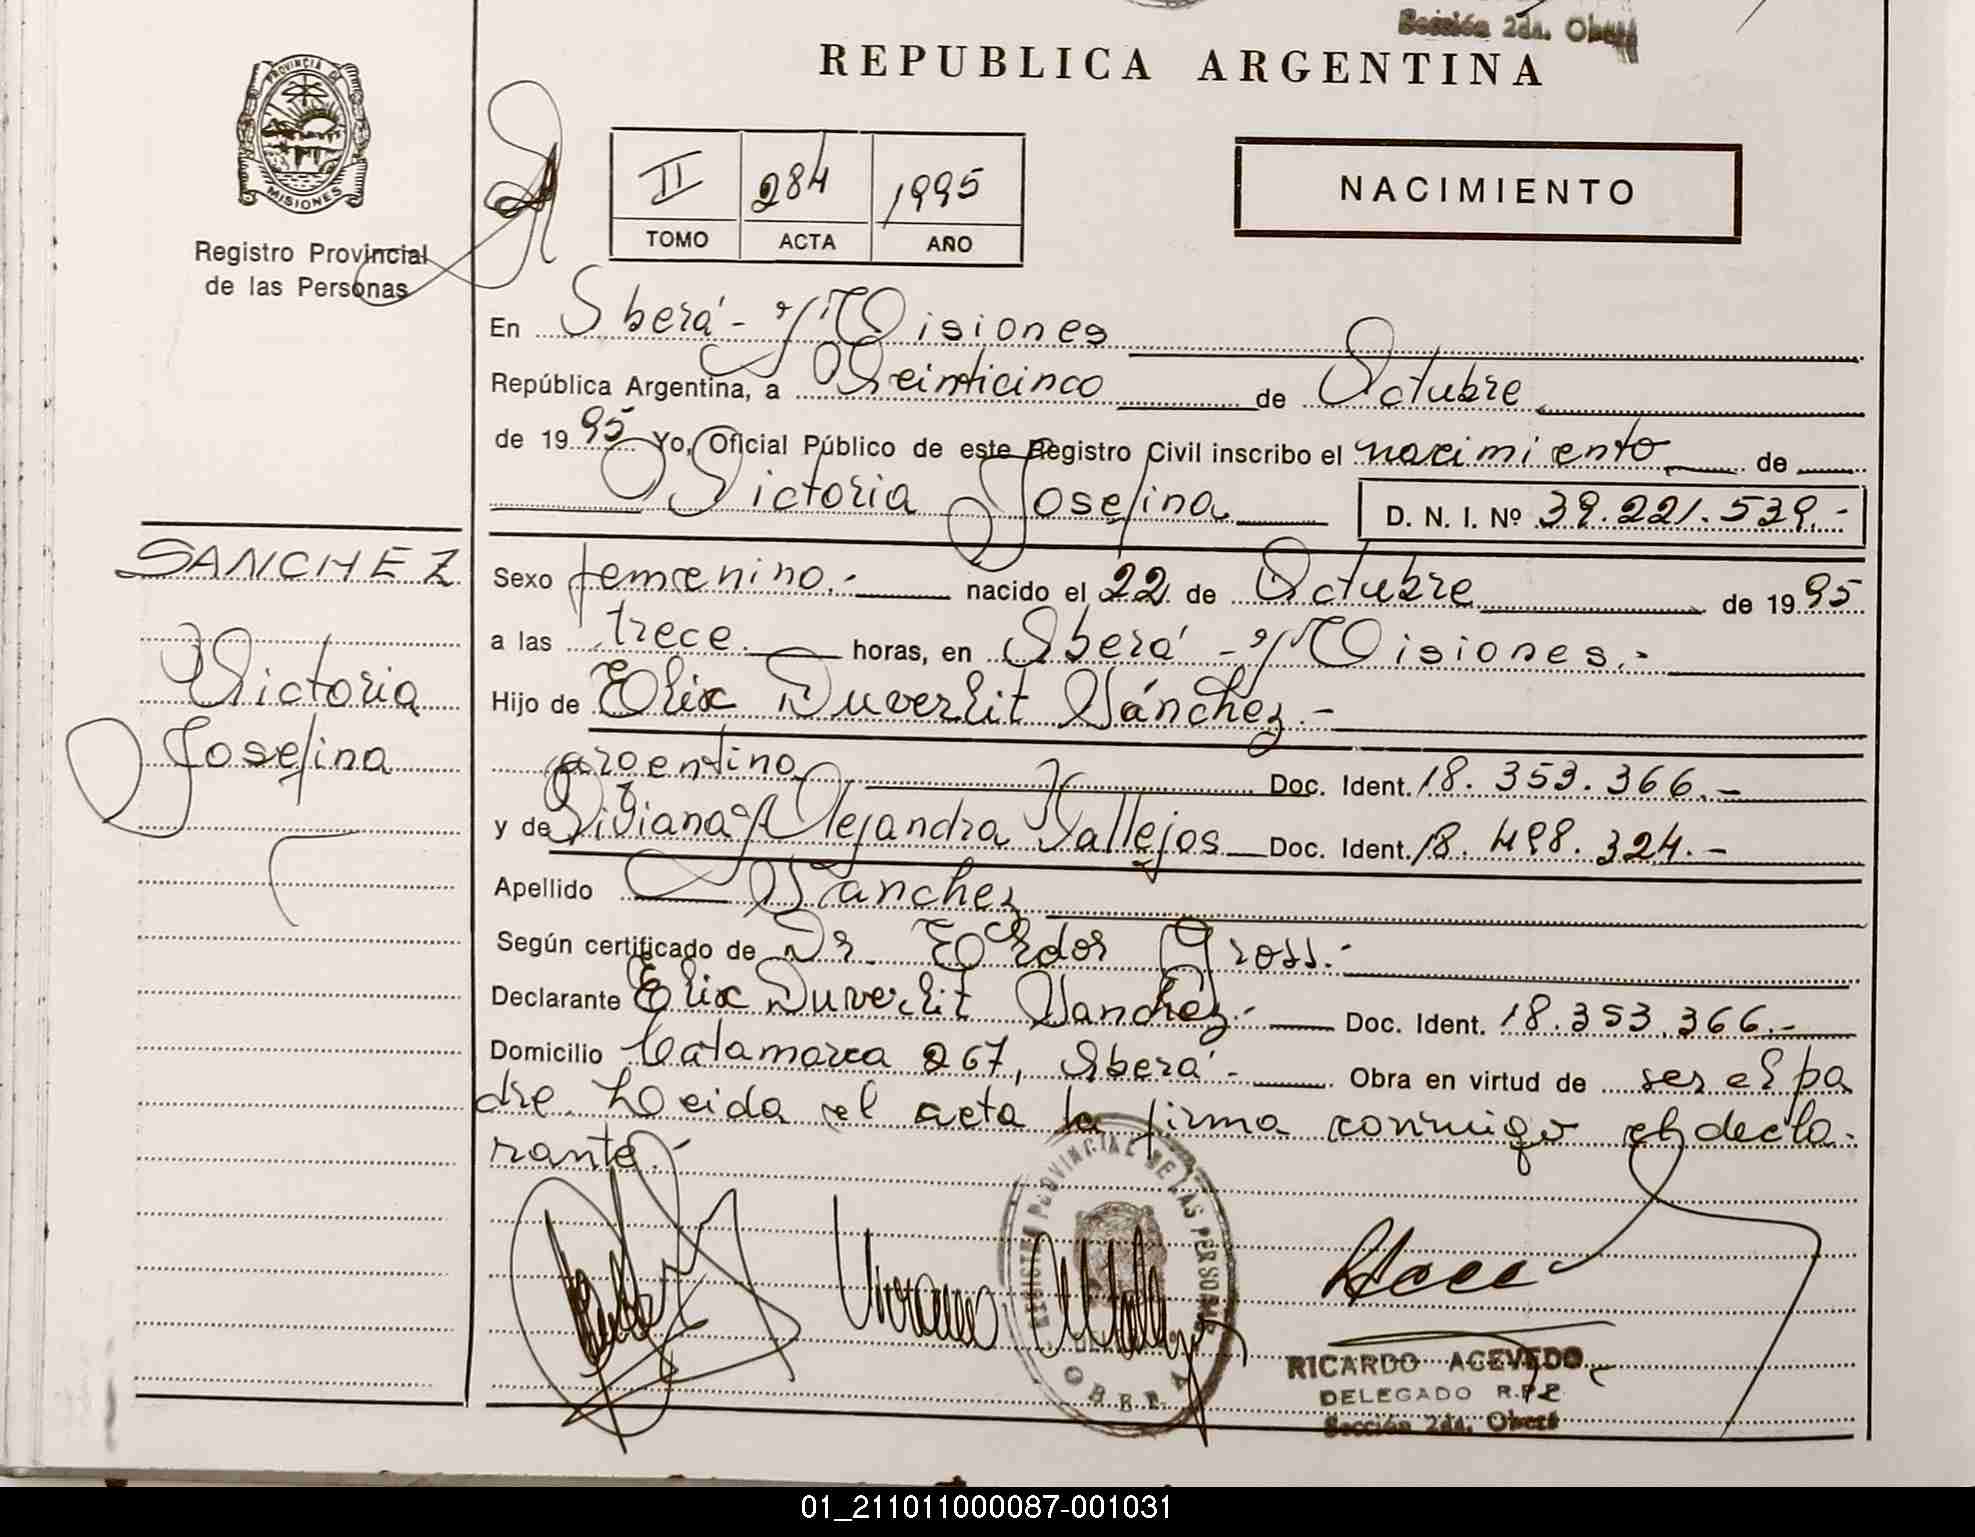 Sección 2da. Oberá
REPUBLICA ARGENTINA
PROVINCIA DE
MISIONES
Registro Provincial
de las Personas
II 284 1995
TOMO ACTA AÑO
NACIMIENTO
En Oberá - Misiones
República Argentina, a Veinticinco de Octubre
de 1995 Yo, Oficial Público de este Registro Civil inscribo el nacimiento de
Victoria Josefina D. N. I. Nº 39.221.539.-
SANCHEZ
Victoria
Josefina
Sexo femenino.- nacido el 22 de Octubre de 1995
a las trece horas, en Oberá - Misiones.-
Hijo de Elix Duverlit Sánchez.-
argentino Doc. Ident. 18.353.366.-
y de Viviana Alejandra Vallejos Doc. Ident. 18.498.324.-
Apellido Sanchez
Según certificado de Dr. Gross.-
Declarante Elix Duverlit Sanchez.- Doc. Ident. 18.353.366.-
Domicilio Catamarca 267, Oberá.- Obra en virtud de ser el pa
dre. Leida el acta la firma conmigo el decla-
rante.-
REGISTRO PROVINCIAL DE LAS PERSONAS
OBERA
RICARDO ACEVEDO
DELEGADO R.P.P.
Sección 2da. Oberá
01_211011000087-001031